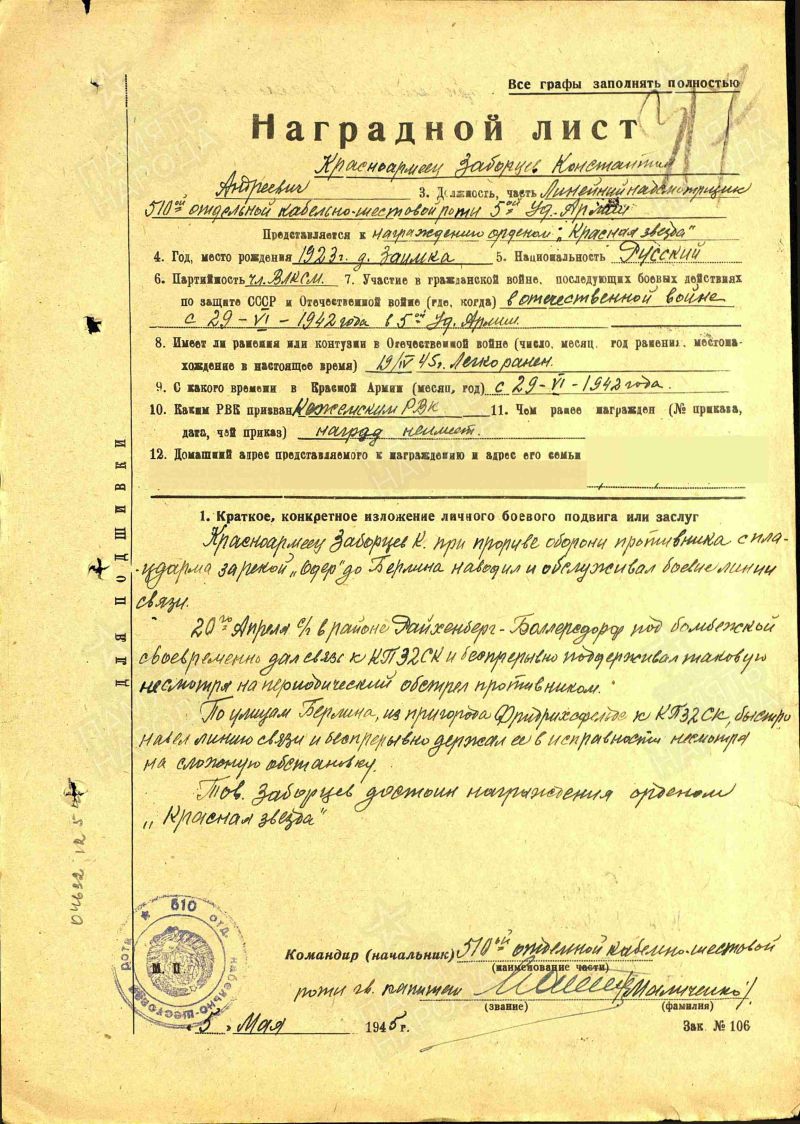 Все графы заполнять полностью
Наградной лист
Красноармеец Заборцев Константин
Андреевич 3. Должность, часть Линейный надсмотрщик
510ой отдельной кабельно-шестовой роты 5ой Уд. Армии
Представляется к награждению орденом „Красная звезда"
4. Год, место рождения 1923г. д. Заимка 5. Национальность Русский
6. Партийность чл. Влксм. 7. Участие в гражданской войне, последующих боевых действиях
по защите СССР и Отечественной войне (где, когда) в отечественной войне
с 29-VI-1942 года в 5ой Уд. Армии.
8. Имеет ли ранения или контузии в Отечественной войне (число, месяц, год ранения, местона-
хождение в настоящее время) 19/IV 45г. Легко ранен.
9. С какого времени в Красной Армии (месяц, год) с 29-VI-1942 года.
10. Каким РВК призван РВК 11. Чем ранее награжден (№ приказа,
дата, чей приказ) наград неимеет.
12. Домашний адрес представляемого к награждению и адрес его семьи
1. Краткое, конкретное изложение личного боевого подвига или заслуг
Красноармеец Заборцев К. при прорыве обороны противника с пла-
цдарма за рекой „Одер" до Берлина наводил и обслуживал боевые линии
связи.
20го Апреля с/г в районе Райхенберг-Боллерсдорф под бомбежкой
своевременно дал связь к КП 32СК и беспрерывно поддерживал таковую
несмотря на периодический обстрел противником.
По улицам Берлина, из пригорода Фридрихсфельде к КП 32СК, быстро
навел линию связи и беспрерывно держал ее в исправности несмотря
на сложную обстановку.
Тов. Заборцев достоин награждения орденом
„Красная звезда"
ДЛЯ ПОДШИВКИ
510 отд. кабельно-шестовая рота
М. П.
Командир (начальник) 510ой отдельной кабельно-шестовой
(наименование части)
роты гв. капитан
(звание) (фамилия)
„5" Мая 1945г. Зак. № 106